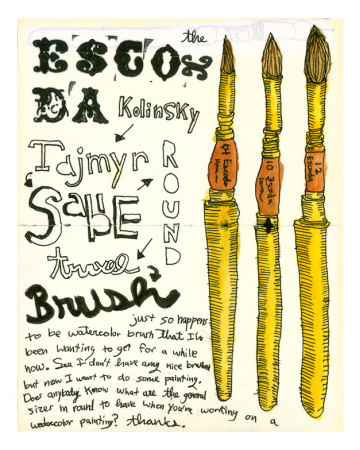 the
ESCO
DA
Kolinsky
Tajmyr
ROUND
Sable
travel
Brush
just so happens
to be watercolor brush that I've
been wanting to get for a while
now. I don't have any nice brushes
but now I want to do some painting.
Does anybody know what are the general
sizes in round to have when you're working on a
watercolor painting? thanks.
Escoda
10 Escoda
12
Escoda